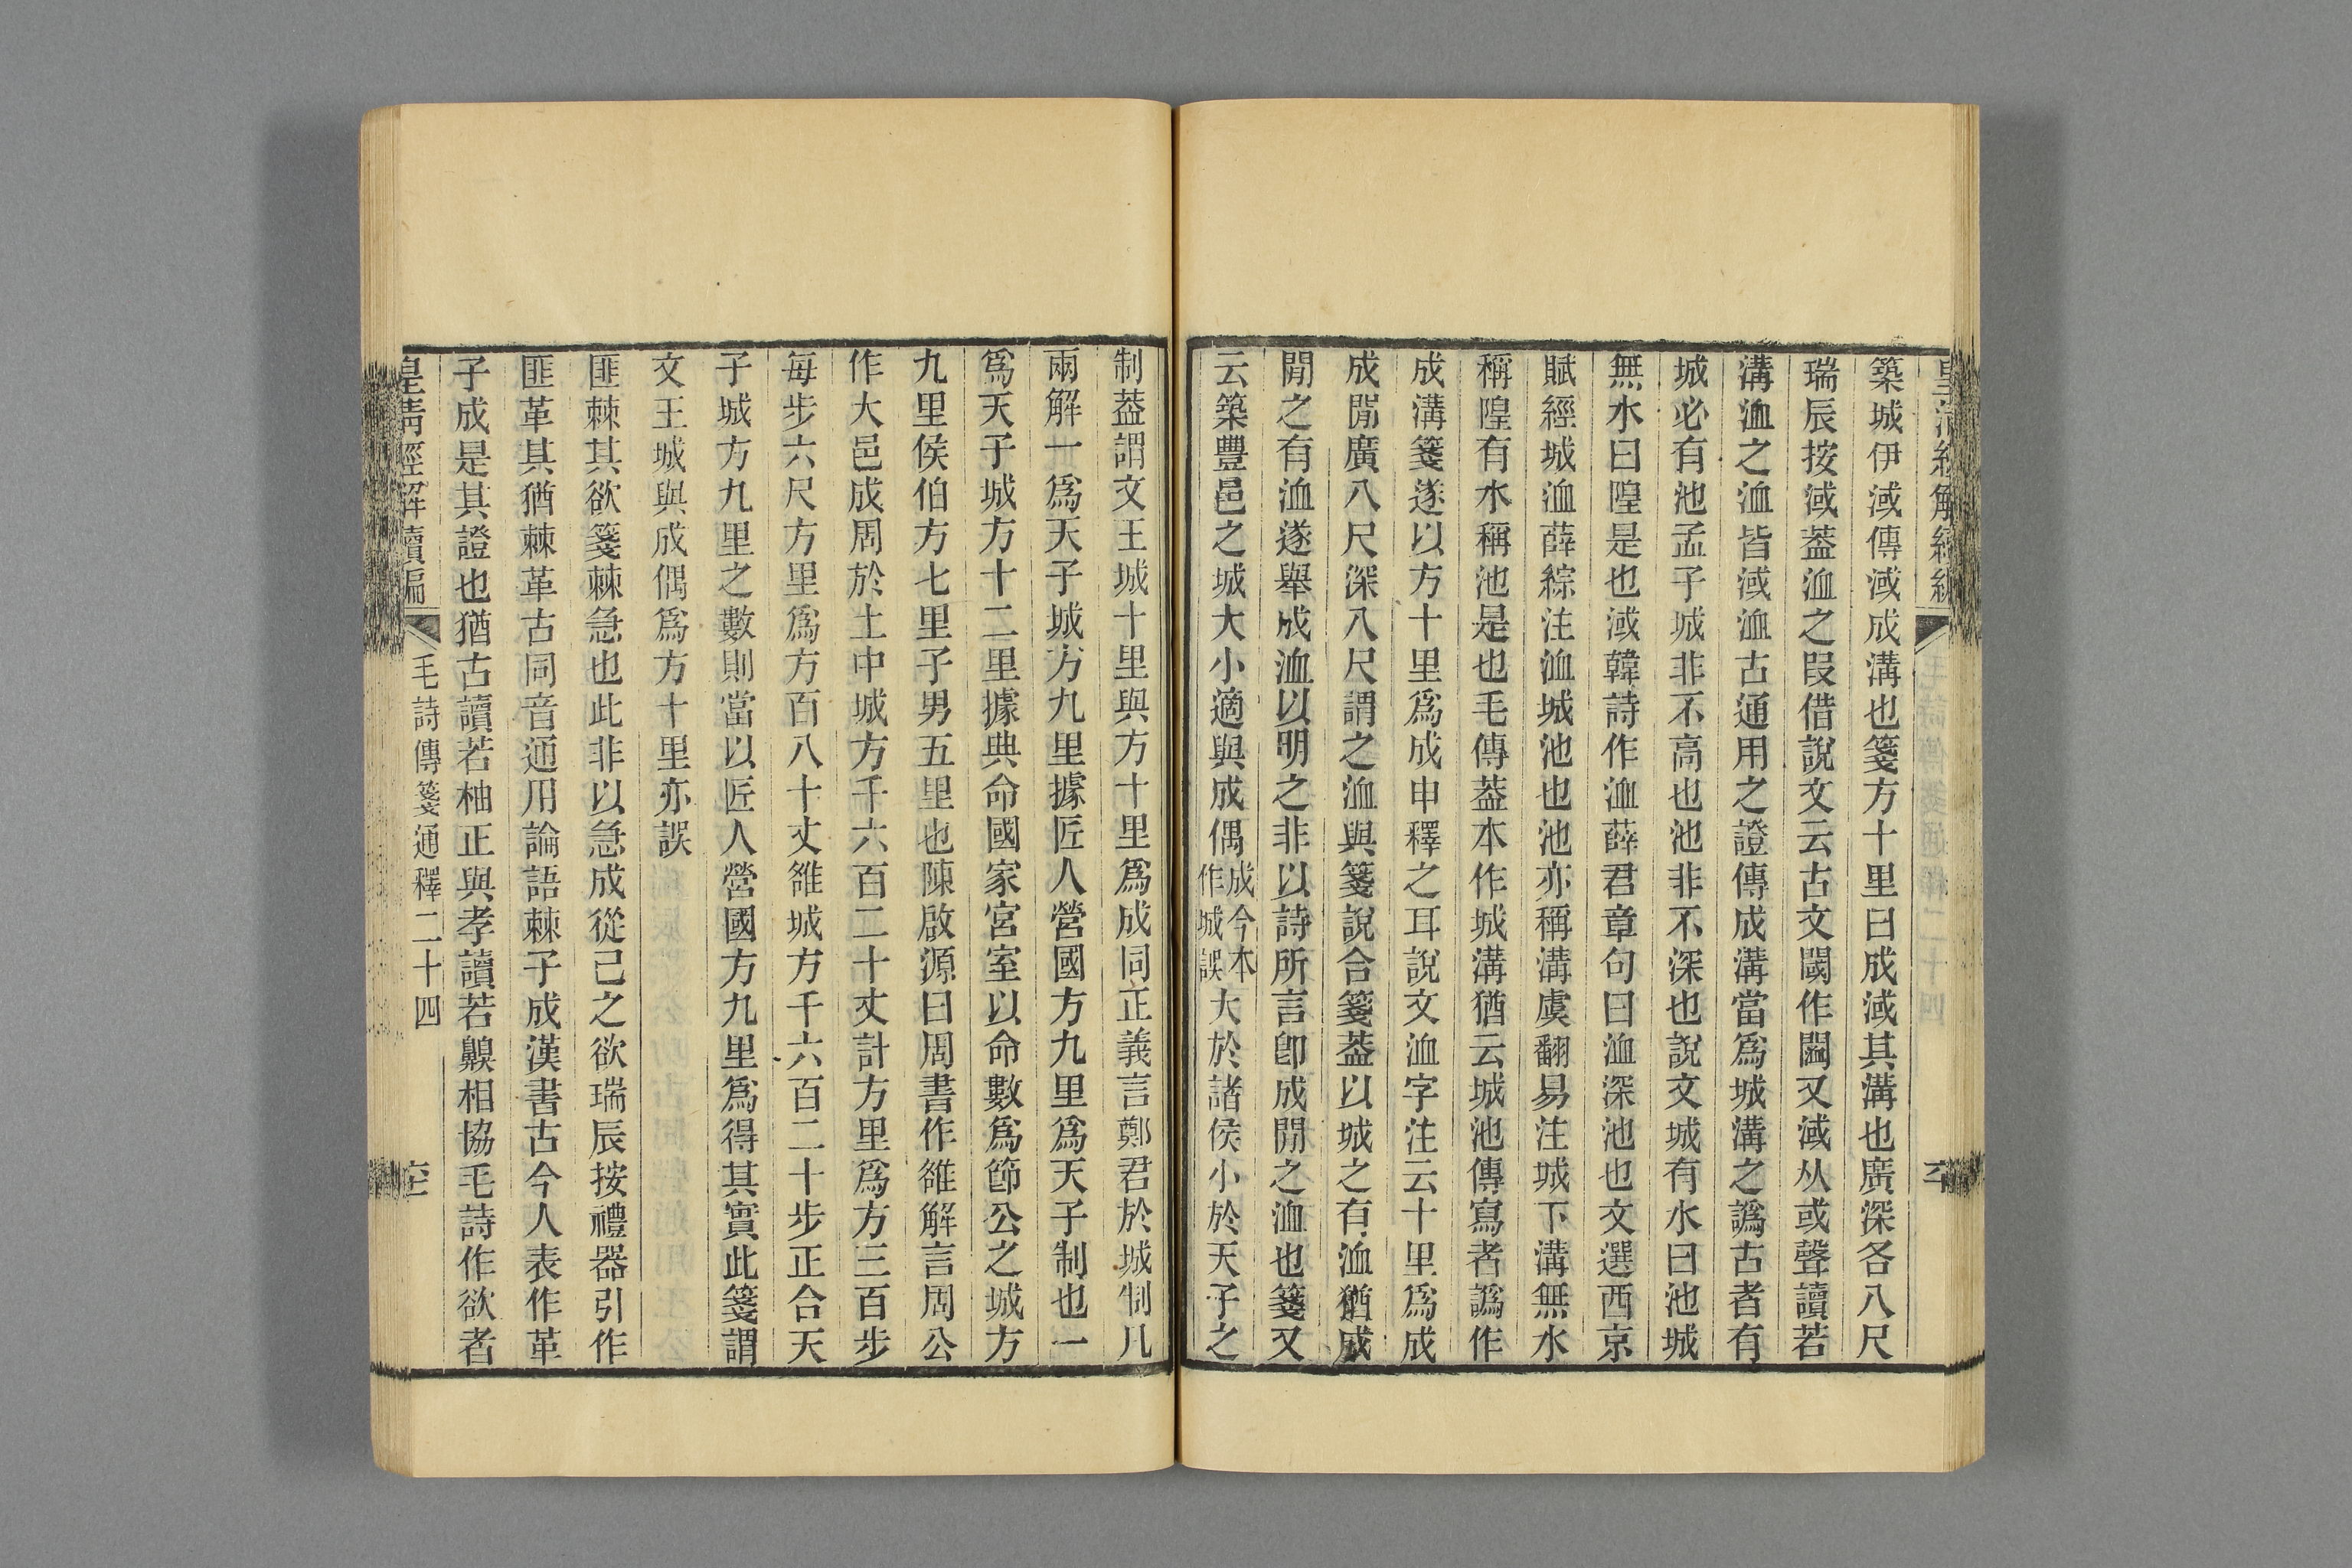 築城伊淢傳淢成溝也箋方十里曰成淢其溝也廣深各八尺
瑞辰按淢葢洫之叚借說文云古文閾作䦗又淢从或聲讀若
溝洫之洫皆淢洫古通用之證傳成溝當爲城溝之譌古者有
城必有池孟子城非不高也池非不深也說文城有水曰池城
無水曰隍是也淢韓詩作洫薛君章句曰洫深池也文選西京
賦經城洫薛綜注洫城池也池亦稱溝虞翻易注城下溝無水
稱隍有水稱池是也毛傳葢本作城溝猶云城池傳寫者譌作
成溝箋遂以方十里爲成申釋之耳說文洫字注云十里爲成
成閒廣八尺深八尺謂之洫與箋說合箋葢以城之有洫猶成
閒之有洫遂舉成洫以明之非以詩所言卽成閒之洫也箋又
云築豐邑之城大小適與成偶成今本作城誤大於諸侯小於天子之
制葢謂文王城十里與方十里爲成同正義言鄭君於城制凡
兩解一爲天子城方九里據匠人營國方九里爲天子制也一
爲天子城方十二里據典命國家宮室以命數爲節公之城方
九里侯伯方七里子男五里也陳啟源曰周書作雒解言周公
作大邑成周於土中城方千六百二十丈計方里爲方三百步
每步六尺方里爲方百八十丈雒城方千六百二十步正合天
子城方九里之數則當以匠人營國方九里爲得其實此箋謂
文王城與成偶爲方十里亦誤
匪棘其欲箋棘急也此非以急成從己之欲瑞辰按禮器引作
匪革其猶棘革古同音通用論語棘子成漢書古今人表作革
子成是其證也猶古讀若柚正與孝讀若齅相協毛詩作欲者
皇清經解續編
毛詩傳箋通釋二十四